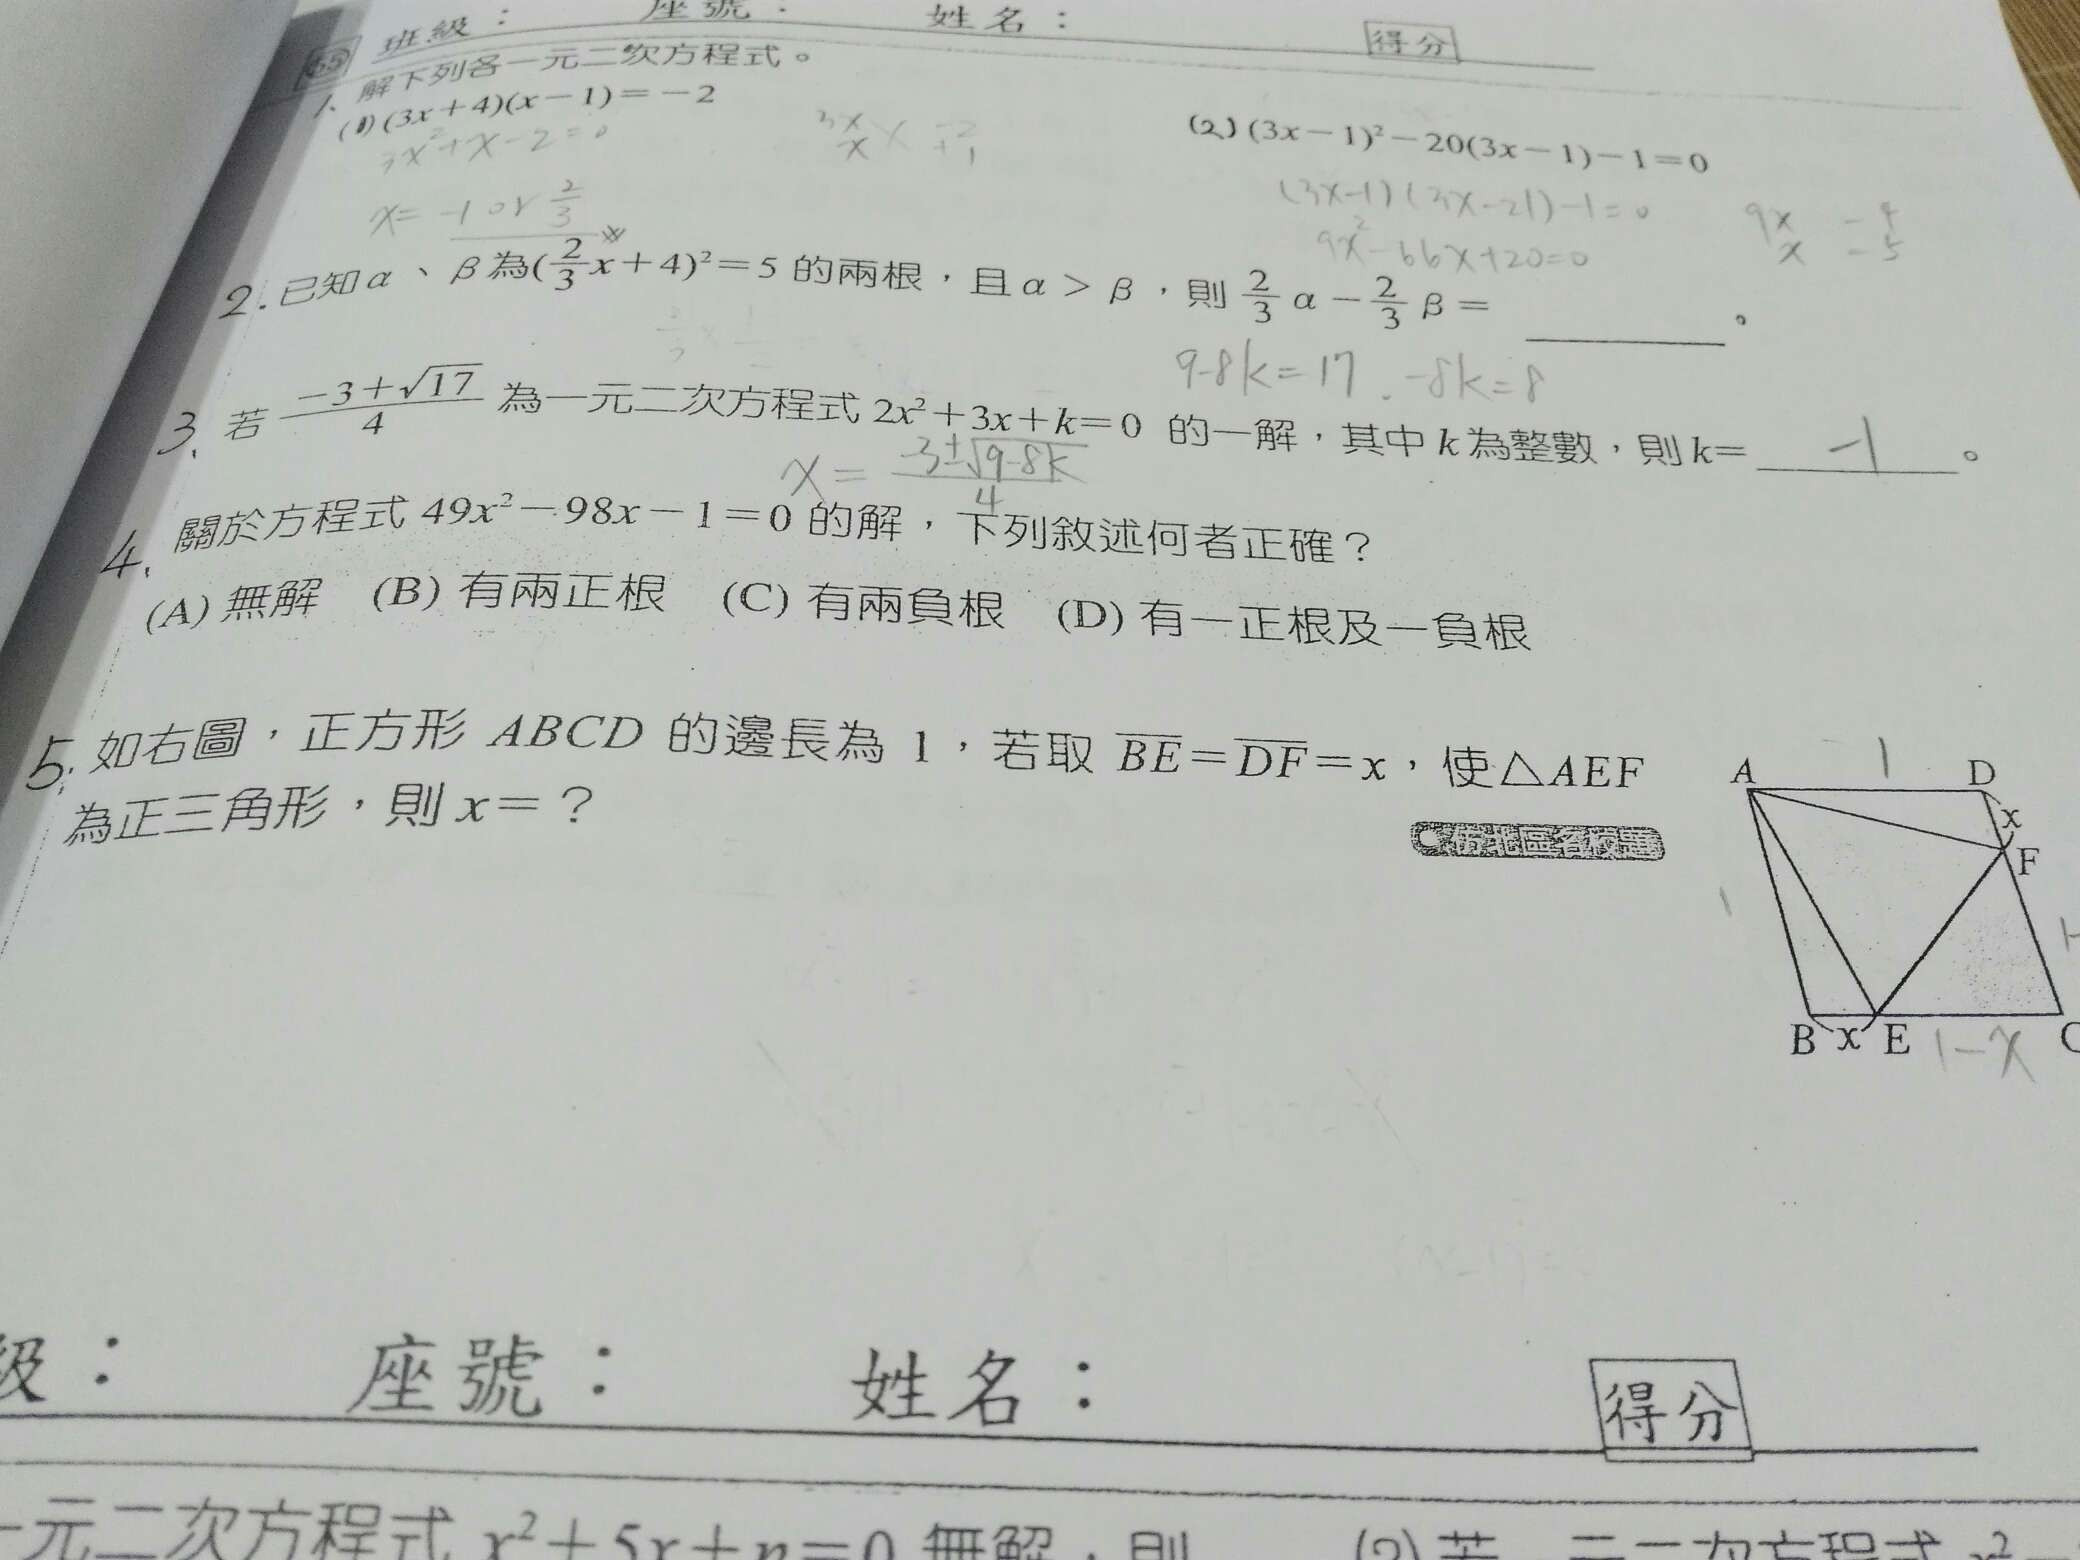 55 班級： 座號： 姓名： 得分
1. 解下列各一元二次方程式。
(1) (3x+4)(x−1)=−2
(2) (3x−1)²−20(3x−1)−1=0
3x²+x−2=0
3x −2
x +1
(3x−1)(3x−21)−1=0
x= −1 or 2/3
9x²−66x+20=0
9x −4
x −5
2. 已知α、β為(2/3 x+4)²=5 的兩根，且α>β，則 2/3 α−2/3 β=＿＿＿。
9-8k=17. -8k=8
3. 若 (−3+√17)/4 為一元二次方程式 2x²+3x+k=0 的一解，其中 k 為整數，則 k= −1 。
x = (-3±√(9-8k))/4
4. 關於方程式 49x²−98x−1=0 的解，下列敘述何者正確？
(A) 無解 (B) 有兩正根 (C) 有兩負根 (D) 有一正根及一負根
5. 如右圖，正方形 ABCD 的邊長為 1，若取 BE=DF=x，使△AEF
為正三角形，則 x=？
北區名校題
A 1 D
x
F
1
1-
B x E 1-x C
級： 座號： 姓名： 得分
一元二次方程式 x²+5x+n=0 無解，則 (2) 若 一元二次方程式 x²